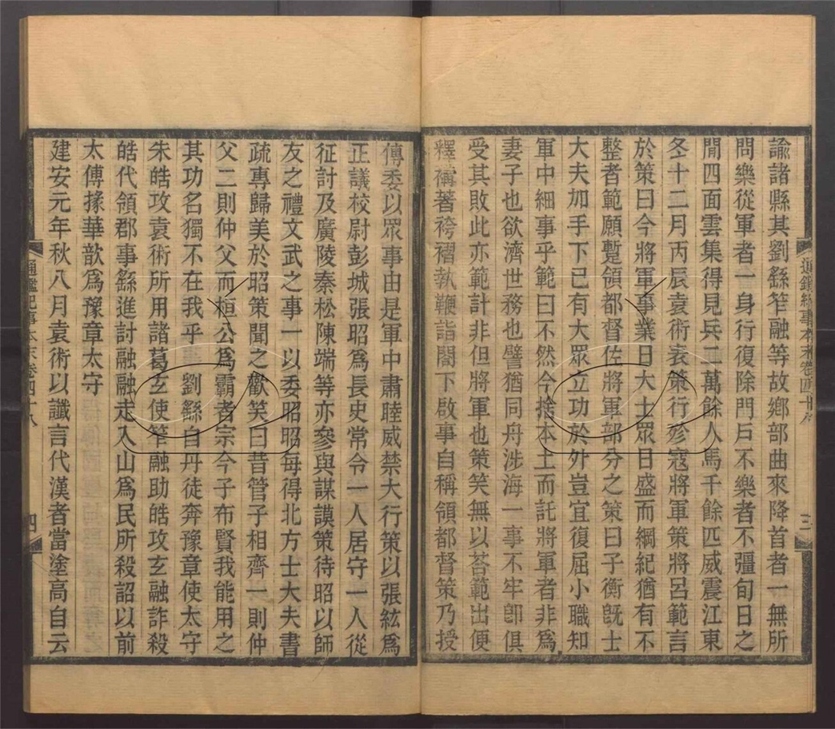 諭諸縣其劉繇笮融等故鄉部曲來降首者一無所
問樂從軍者一身行復除門戶不樂者不彊旬日之
閒四面雲集得見兵二萬餘人馬千餘匹威震江東
冬十二月丙辰袁術表策行殄寇將軍策將呂範言
於策曰今將軍事業日大士眾日盛而綱紀猶有不
整者範願蹔領都督佐將軍部分之策曰子衡旣士
大夫加手下已有大眾立功於外豈宜復屈小職知
軍中細事乎範曰不然今捨本土而託將軍者非爲
妻子也欲濟世務也譬猶同舟涉海一事不牢卽俱
受其敗此亦範計非但將軍也策笑無以荅範出便
釋褠著袴褶執鞭詣閤下啟事自稱領都督策乃授
通鑑紀事本末卷四十八
三
傳委以眾事由是軍中肅睦威禁大行策以張紘爲
正議校尉彭城張昭爲長史常令一人居守一人從
征討及廣陵秦松陳端等亦參與謀謨策待昭以師
友之禮文武之事一以委昭昭每得北方士大夫書
疏專歸美於昭策聞之歡笑曰昔管子相齊一則仲
父二則仲父而桓公爲霸者宗今子布賢我能用之
其功名獨不在我乎 劉繇自丹徒奔豫章使太守
朱皓攻袁術所用諸葛玄使笮融助皓攻玄融詐殺
皓代領郡事繇進討融融走入山爲民所殺詔以前
太傅掾華歆爲豫章太守
建安元年秋八月袁術以讖言代漢者當塗高自云
通鑑紀事本末卷四十八
四